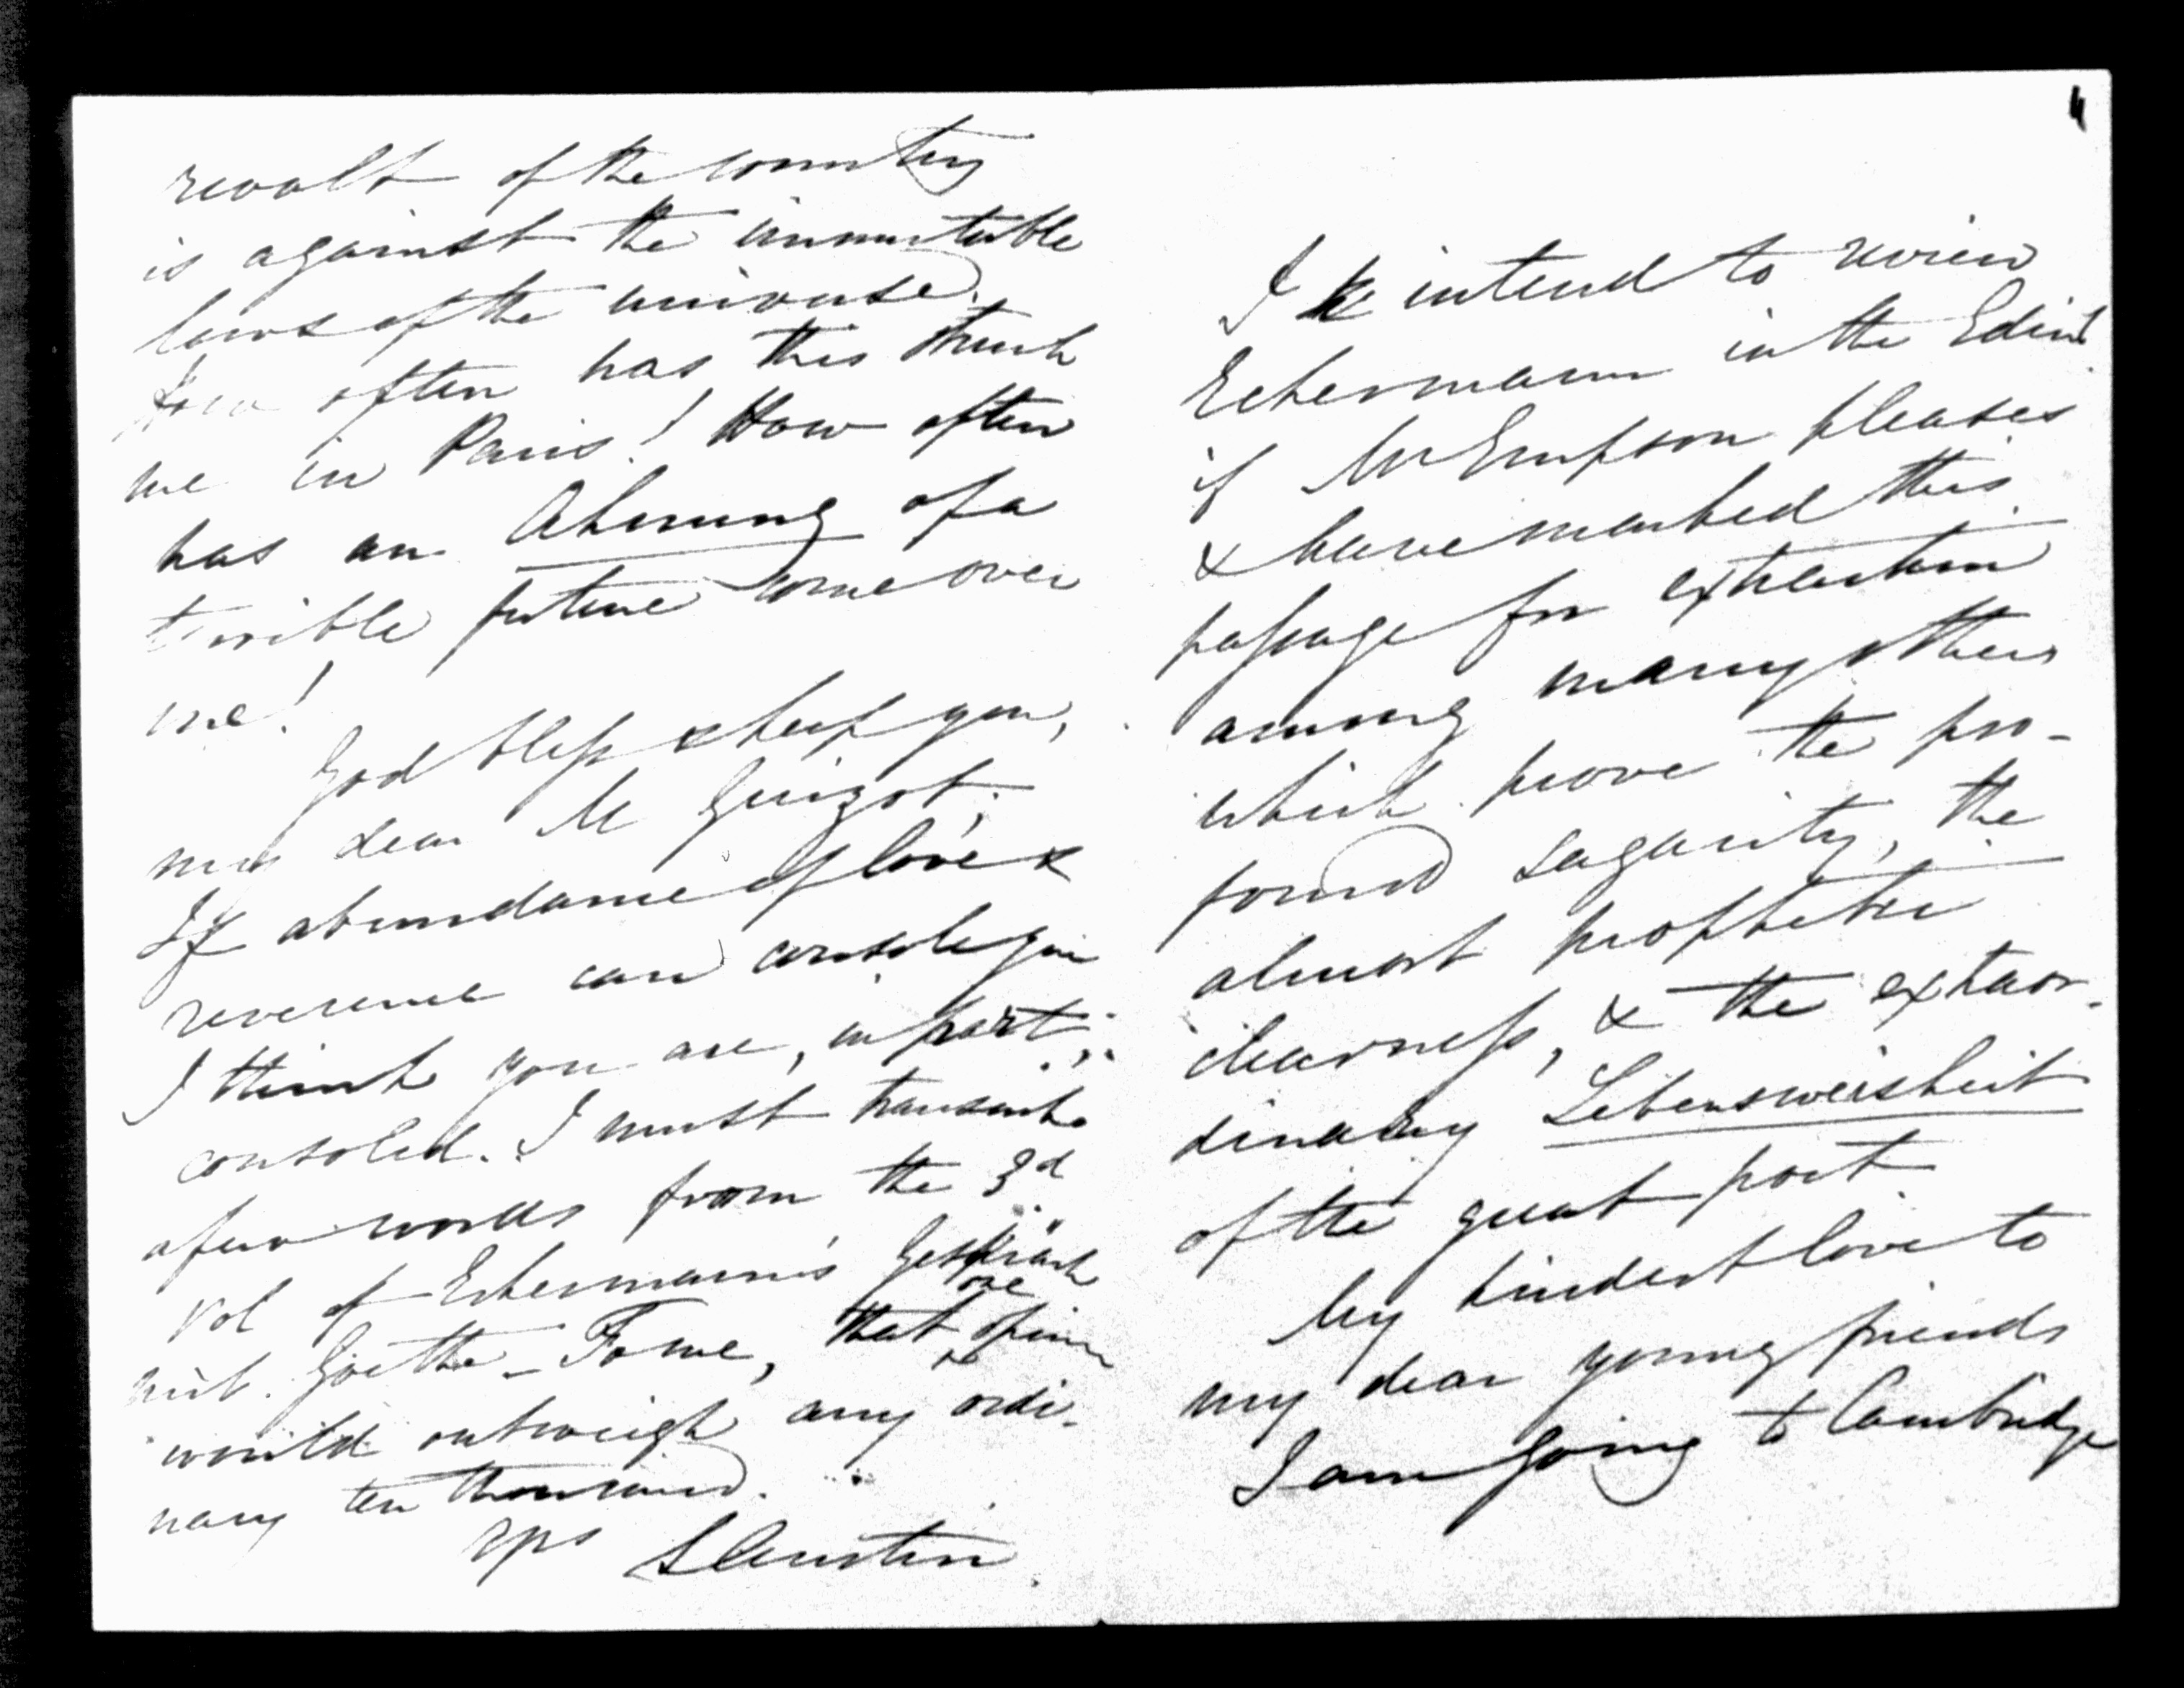 revolt of the country
is against the immutable
laws of the universe.
How often has this struck
me in Paris! How often
has an Ahnung of a
terrible future come over
me!
God bless & keep you,
my dear M Guizot;
If abundance of love &
reverence can console you
I think you are, in part,
consoled. I must transcribe
a few words from the 3d
vol of Eckermann's Gespräch
mit Goethe – To me, that one opinion
would outweigh any ordi-
nary ten thousand.
yrs S Austin.
I intend to review
Eckermann in the Edinb
if Mr Empson pleases
& have marked this
passage for extraction
among many others
which prove the pro-
found sagacity, the
almost prophetic
clearness, & the extraor-
dinary Lebensweisheit
of the great poet
My kindest love to
my dear young friends
I am going to Cambridge